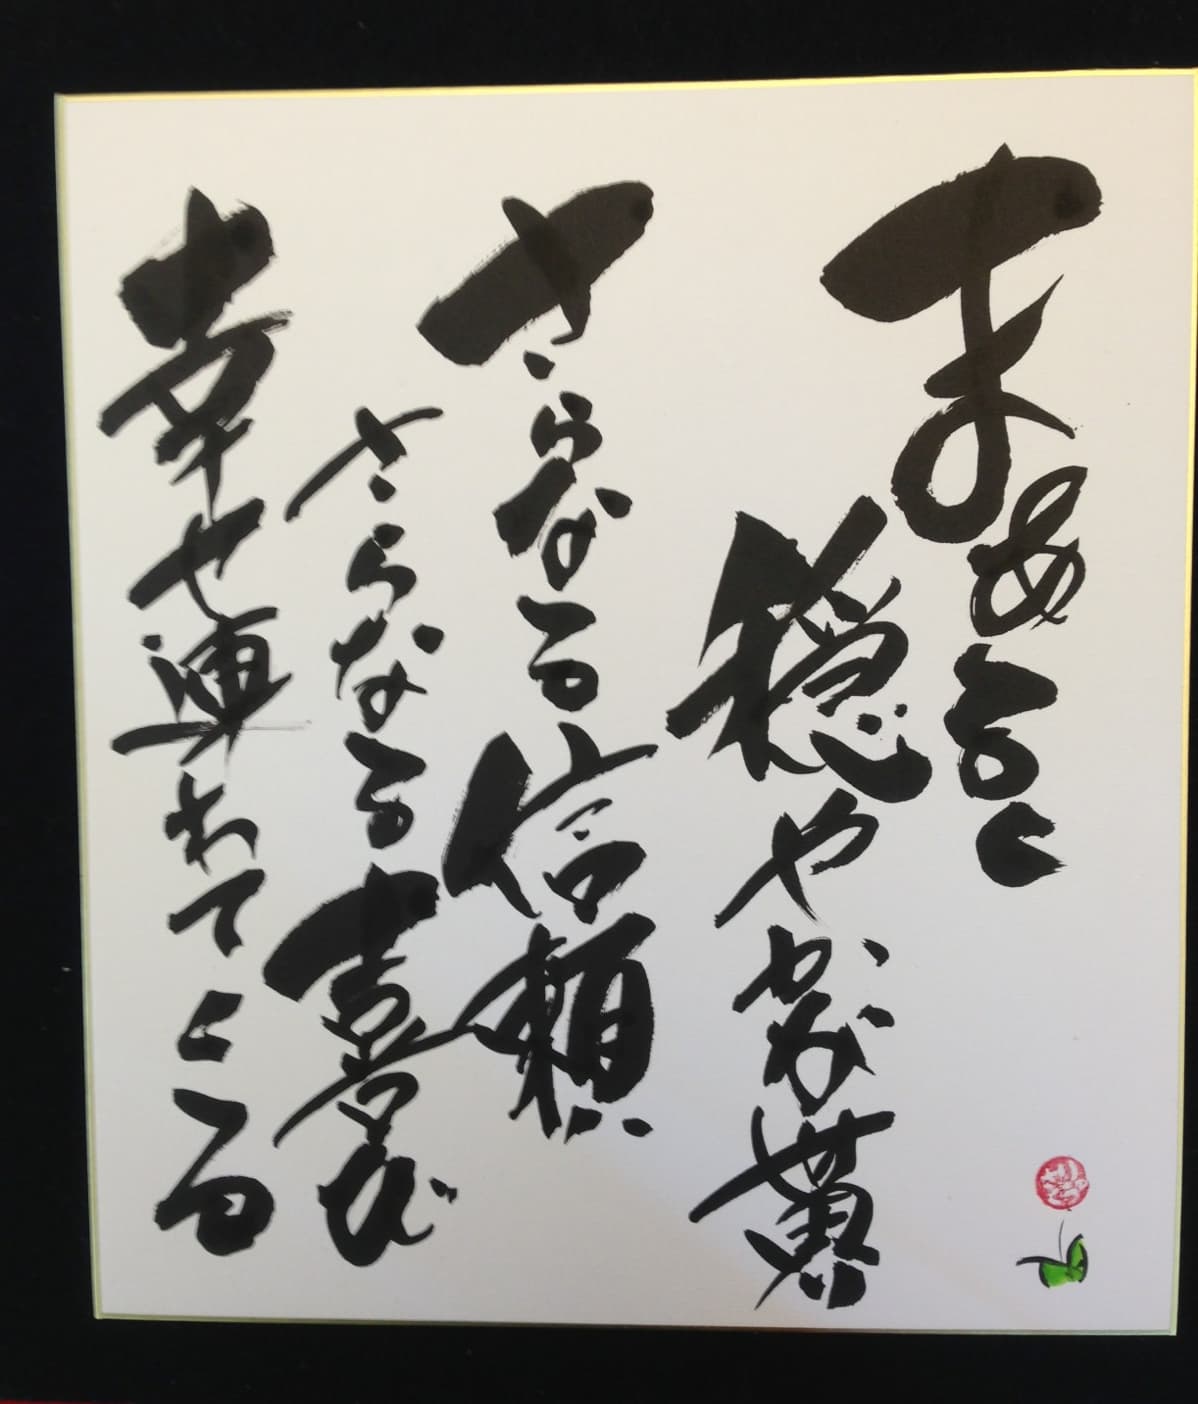 まあるく
穏やかな薫
さらなる信頼
さらなる喜び
幸せ連れてくる